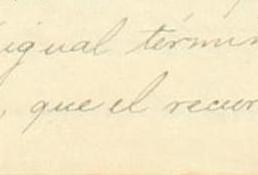 igual términ
, que el recur